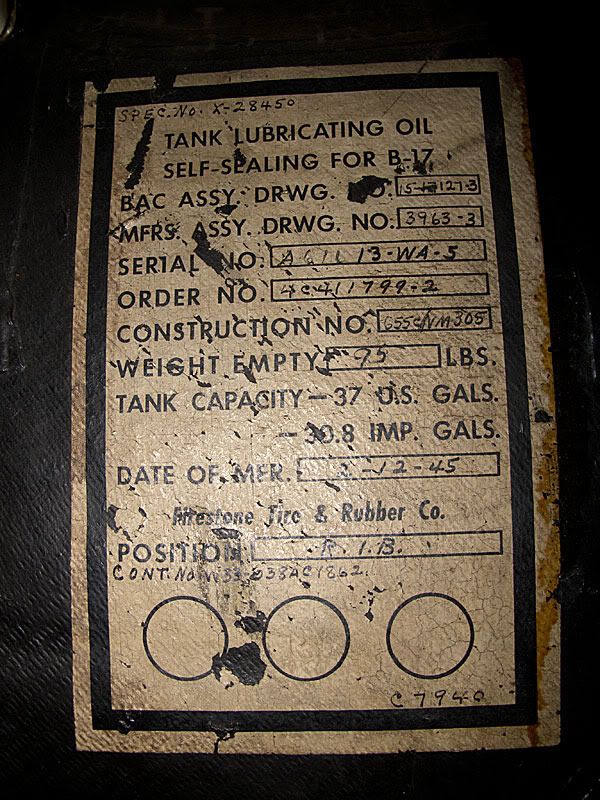 SPEC. NO. X-28450
TANK LUBRICATING OIL
SELF-SEALING FOR B-17
BAC ASSY. DRWG. NO.
MFRS. ASSY. DRWG. NO. 3963-3
SERIAL NO. 13-WA-5
ORDER NO. 4C411799-2
CONSTRUCTION NO.
WEIGHT EMPTY 95 LBS.
TANK CAPACITY - 37 U.S. GALS.
- 30.8 IMP. GALS.
DATE OF MFR. 2-12-45
Firestone Tire & Rubber Co.
POSITION R.I.B.
CONT. NO. W33 038AC1862
C7940